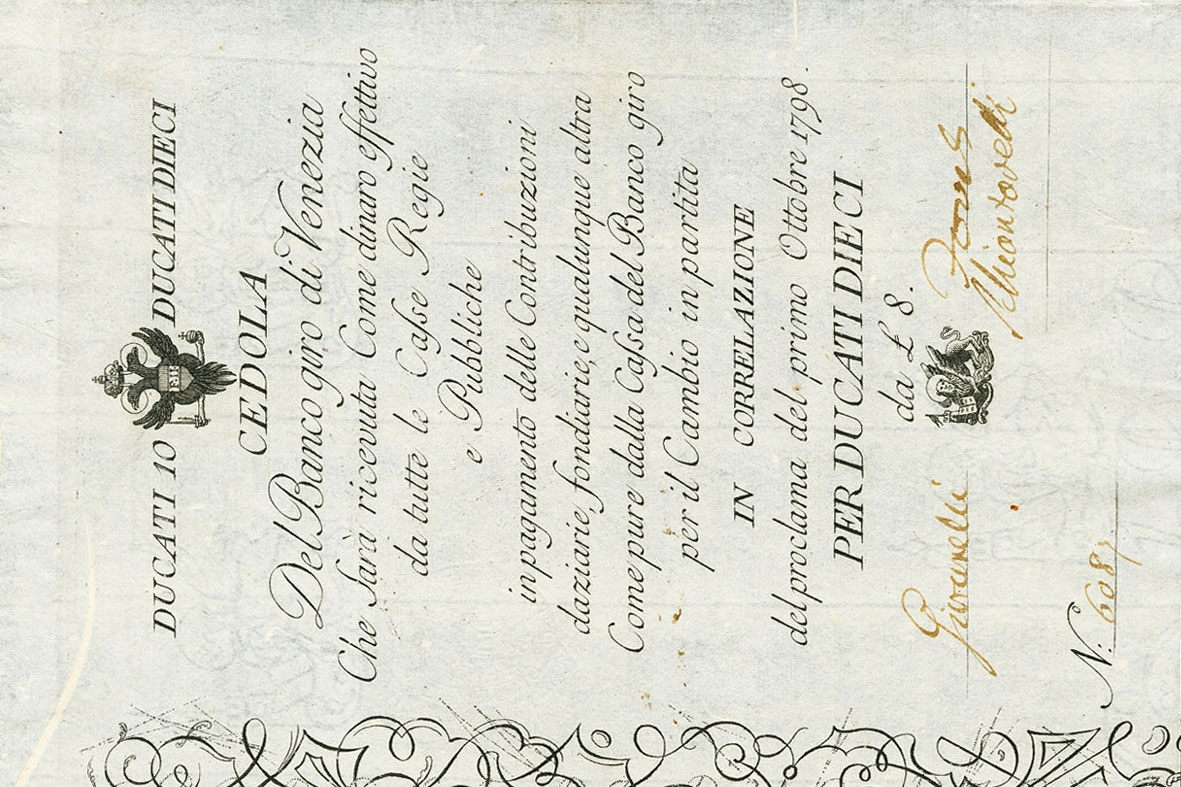 DUCATI 10 DUCATI DIECI
CEDOLA
Del Banco giro di Venezia
Che sarà ricevuta Come dinaro effettivo
da tutte le Casse Regie
e Pubbliche
in pagamento delle Contribuzioni
daziarie, fondiarie, e qualunque altra
Come pure dalla Cassa del Banco giro
per il Cambio in partita
IN CORRELAZIONE
del proclama del primo Ottobre 1798.
PER DUCATI DIECI
da £ 8.
Giovanelli
N.º 6087